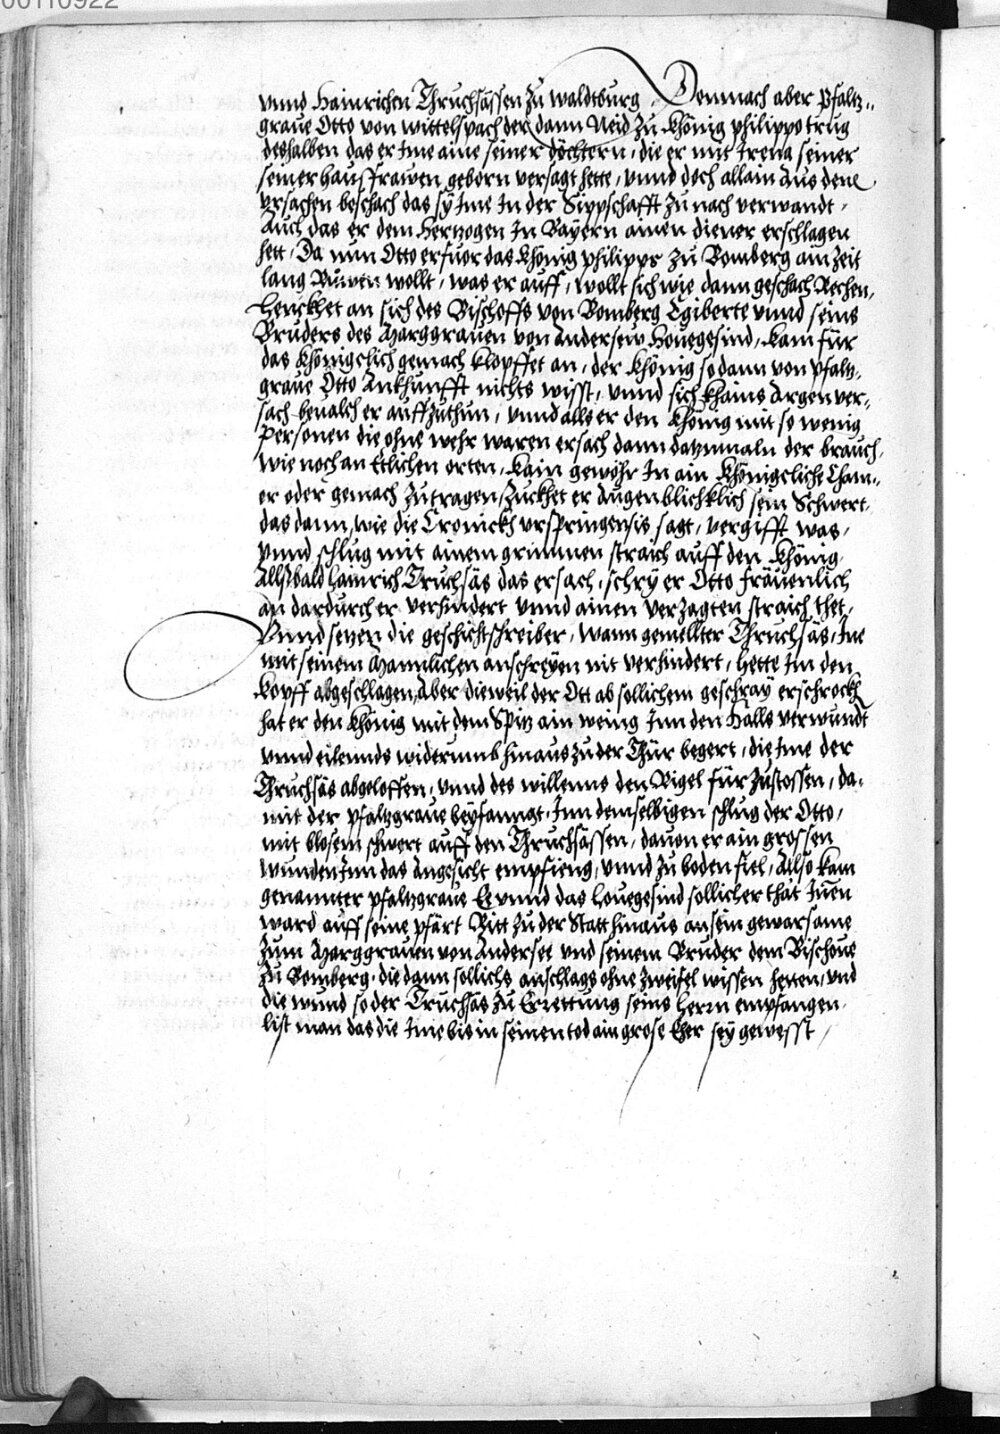 00110922
vnnd Hainrichen Thruchsässen zu Waldtburg Demnach aber Pfaltz-
graue Otto von Wittelspach der dann Neid zu Khönig philippo trug
deshalben das er Ime aine seiner döchtern, die er mit Irena seiner
seiner hausfrawen geborn versagt hette, vnnd doch allain aus denn
vrsachen beschach das sÿ Ime In der Sippschafft zu nach verwandt,
Auch das er dem Hertzogen In Baÿern ainen diener erschlagen
hett, Da nun Otto erfuor das Khönig philipps zu Bomberg ain Zeit
lang Ruwen wollt, was er auff, wollt sich wie dann geschach Rechen,
Henckhet an sich des Bischoffs von Bomberg Egiberte vnnd seins
Bruders des Marggrauen von Andersew Houegesind, kam für
das Khönigclich gemach klopffet an, der Khönig so dann von pfaltz-
graue Otto Ankhunfft nichts wisst, vnnd sich khains Argen ver-
sach beualch er auffzuthun, vnnd alls er den Khönig mit so wenig
Personen die ohne wehr waren ersach dann datzumaln der brauch,
wie noch an ettlichen orten, kain gewöhr In ain Khönigcliche Cham-
er oder gemach zutragen, zuckhet er Augenblickhlich sein Schwert,
das dann, wie die Cronickh vrspringensis sagt, vergifft was,
vnnd schlug mit ainem grimmen straich auff den Khönig
Allsbald Hainrich Truchsäs das ersach, schrÿ er Otto fräuenlich
an dardurch er verhindert vnnd ainen verzagten straich thet,
Vnnd setzen die geschichtschreiber, wann gemellter Thruchsäs, Ine
mit seinem Mannlichen anschreÿen nit verhindert, hette Im den
Kopff abgeschlagen, Aber dieweil der Ott ab sollichem geschray erschrockh
hat er den Khönig mit dem Spitz ain wenig Inn den Halls verwundt
vnnd eilennds widerumb hinaus zu der Thür begert, die Ime der
Thruchsäs abgeloffen, vnnd des willenns den Rigel für zustossen, da-
mit der pfaltzgraue beÿfanngt, Inn demselbigen schlug der Otto,
mit blosem schwert auff den Thruchsässen, dauon er ain grossen
wunden Inn das Angesicht empfieng, vnnd zu boden fiel, Allso kam
genannter pfaltzgraue Ee vnnd das Houegesind sollicher that Innen
ward auff seine pfärt Ritt zu der Statt hinaus an sein gewarsame
zum Marggrauen von Andersee vnd seinem Bruder dem Bischoue
zu Bomberg, die dann sollichs anschlags ohne zweifel wissen hetten, vnd
die wund so der Truchsäs zu Errettung seins Herrn empfangen,
list man das die Ime bis in seinen tod ain grose Eher seÿ gewesst,